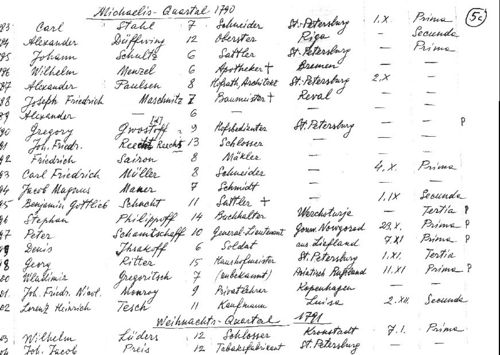 Michaelis-Quartal 1790
(5c)
83. Carl Stahl 7 Schneider St. Petersburg 1.X. Prima
84 Alexander 12 Oberster Riga — Secunda
85 Johann Schultz 6 Sattler — — Prima
86 Wilhelm Menzel 6 Apotheker + Bremen —
87 Alexander Paulsen 8 Hofrath, Architekt St. Petersburg 2.X —
88 Joseph Friedrich Maschnitz 7 Baumeister + Reval — —
89 Alexander — 6 — — — —
90 Gregory 9 Hofbedienter St. Petersburg — — P
91 Joh. Friedr. 13 Schlosser — — —
92 Friedrich Sairon 8 Mäkler — — —
93 Carl Friedrich Müller 8 Schneider — 4.X. Prima
94 Jacob Magnus 7 Schmidt — — —
95 Benjamin Gottlieb Schacht 11 Sattler + — 1.IX Secunda
96 Stephan Philippoff 14 Buchhalter Werchoturje — Tertia P
97 Peter 10 General Lieutenant Gouv. Nowgorod 28.X. Prima P
98 Denis 6 Soldat aus Liefland 7.XI Prima P
99 Georg Ritter 15 Haushofmeister St. Petersburg 1.XI. Tertia
00 Wladimir Gregoritsch 7 (unbekannt) Asiatisch Rußland 11.XI Prima P
01. Joh. Friedr. Nicol. 9 Privatlehrer Kopenhagen — —
02 Lorentz Heinrich Tesch 11 Kaufmann Luisa 2.XII. Secunda
Weihnachts-Quartal 1791
03 Wilhelm Lüders 12 Schlosser Kronstadt 7.1. Prima
Joh. Jacob Preis 12 Tabaksfabrikant St. Petersburg — —